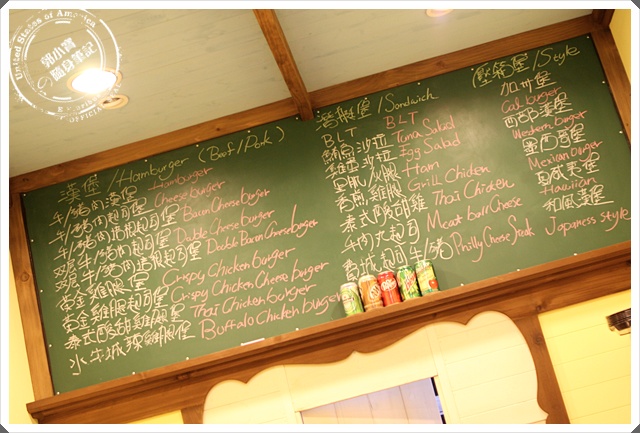 United States of America
郭小寶
の隨身筆記
漢堡 / Hamburger (Beef / Pork)
牛/豬肉漢堡 Hamburger
牛/豬肉起司堡 Cheese burger
牛/豬肉培根起司堡 Bacon Cheese burger
双層牛/豬肉起司堡 Double Cheese burger
双層牛/豬肉培根起司堡 Double Bacon Cheese burger
黃金雞腿堡 Crispy Chicken burger
黃金雞腿起司堡 Crispy Chicken Cheese burger
泰式酸甜雞腿堡 Thai Chicken burger
水牛城辣雞腿堡 Buffalo Chicken burger
潛艇堡 / Sandwich
BLT BLT
鮪魚沙拉 Tuna Salad
雞蛋沙拉 Egg Salad
火腿 Ham
香煎雞腿 Grill Chicken
泰式酸甜雞 Thai Chicken
牛肉丸起司 Meat ball Cheese
費城起司牛/豬 Philly Cheese Steak
壓箱堡 / Style
加州堡
Cal. burger
西部漢堡
Western burger
墨西哥堡
Mexican burger
夏威夷堡
Hawaiian
和風漢堡
Japanese style